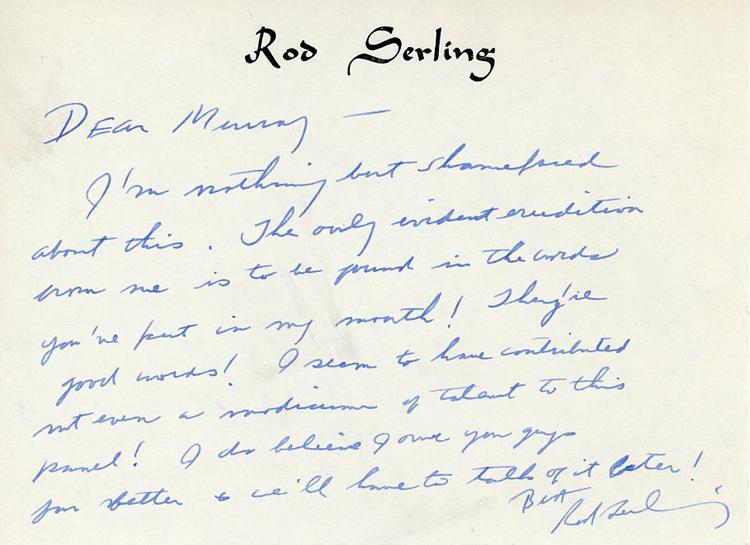 Rod Serling
Dear Murray —
I'm nothing but shamefaced
about this. The only evident erudition
from me is to be found in the words
you've put in my mouth! They're
good words! I seem to have contributed
not even a modicum of talent to this
panel! I do believe I owe you guys
far better & we'll have to talk of it later!
Best
Rod Serling